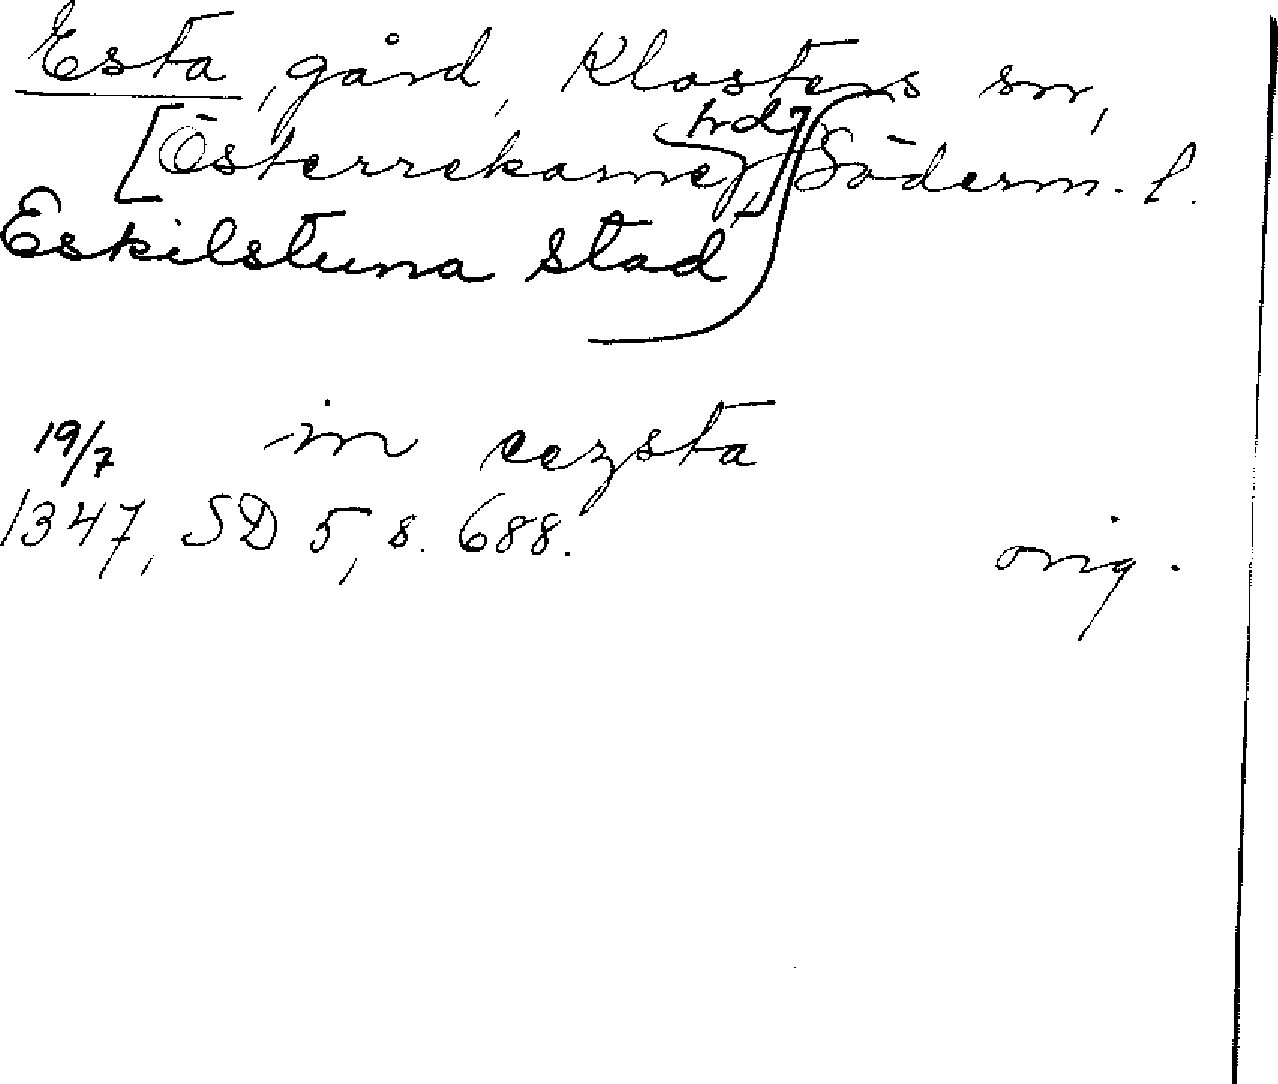 Esta, gård, Klosters sn,
[Österrekarne hd] Söderm. l.
Eskilstuna stad
19/7 in eezsta
1347, SD 5, s. 688.
orig.